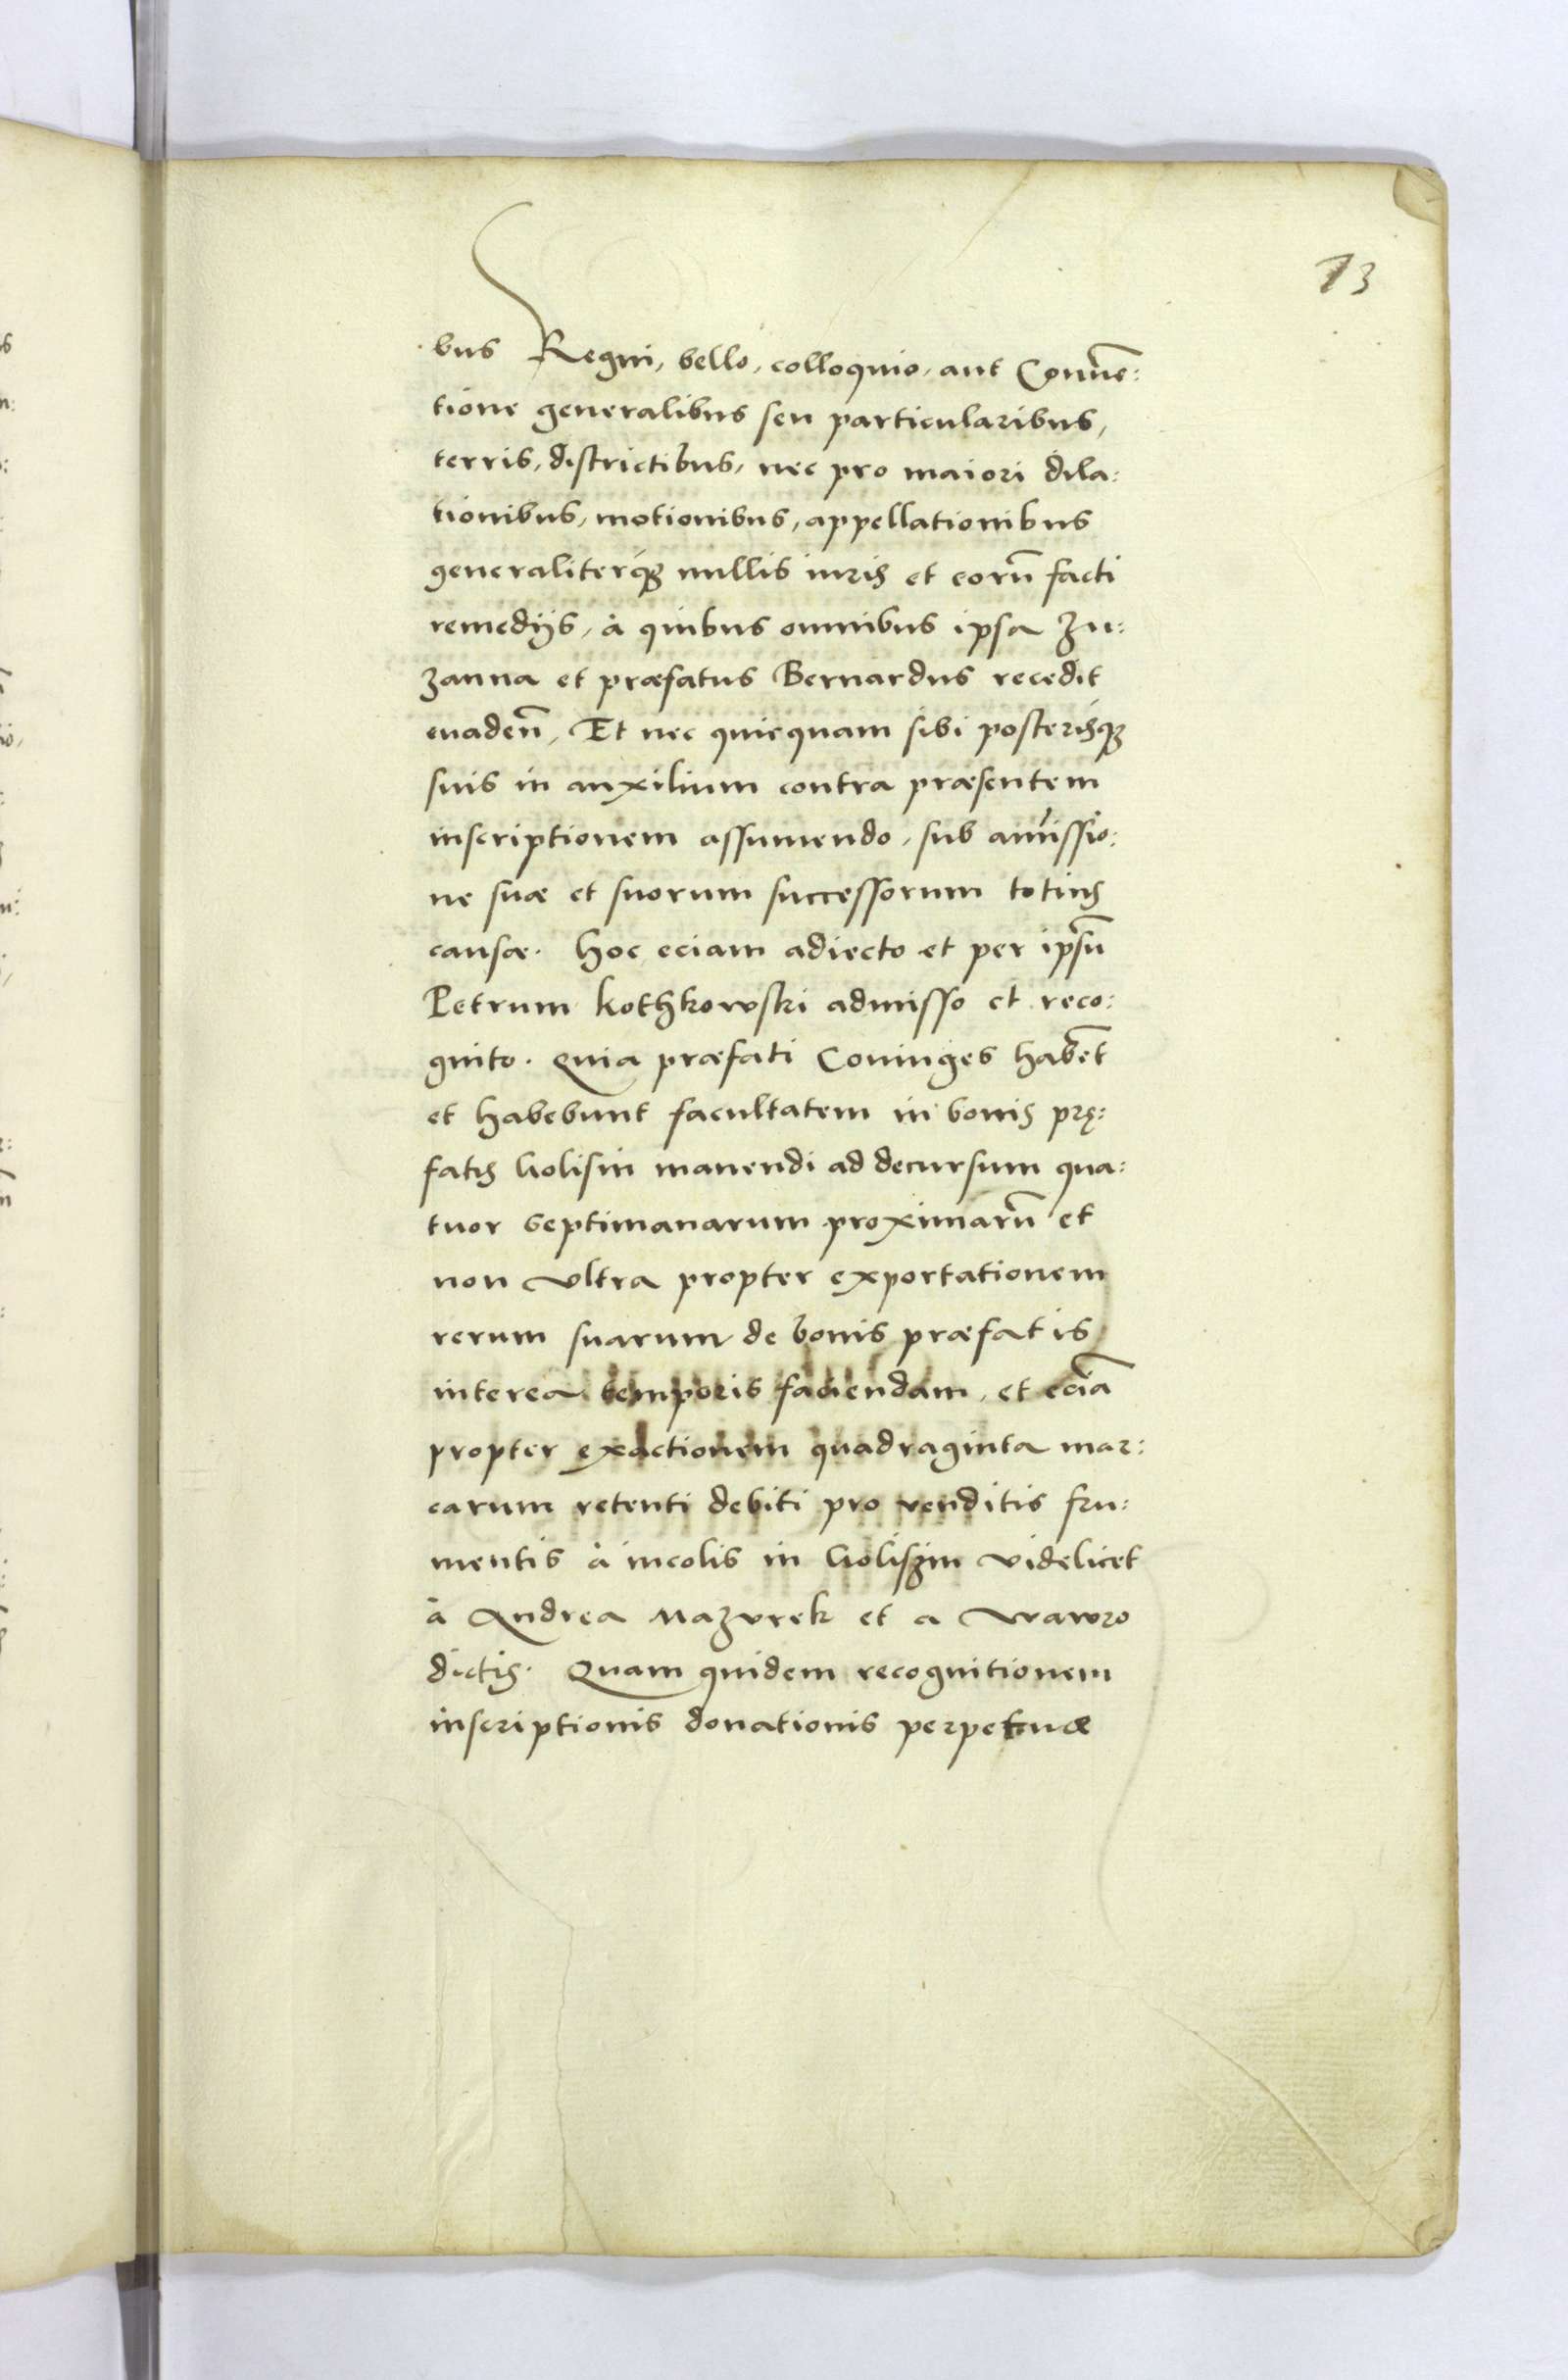 13
bus Regni, bello, colloquio, aut Conuẽ:
tione generalibus seu particularibus,
terris, districtibus, nec pro maiori dila:
tionibus, motionibus, appellationibus
generaliterq́ꝫ nullis iuris et eorũ facti
remedijs, à quibus omnibus ipsa Zu:
zanna et præfatus Bernardus recedit
euadeñ, Et nec quicquam sibi posterisq́ꝫ
suis in auxilium contra præsentem
inscriptionem assumendo, sub amissio:
ne suæ et suorum successorum totius
causæ. Hoc eciam adiecto et per ipsũ
Petrum Kothkowski admisso et reco:
gnito. Quia præfati Coniuges habẽt
et habebunt facultatem in bonis prę:
fatis Golisin manendi ad decursum qua:
tuor septimanarum proximarũ et
non vltra propter exportationem
rerum suarum de bonis præfatis
interea temporis faciendam, et eciã
propter exactionem quadraginta mar:
carum retenti debiti pro venditis fru:
mentis à incolis in Goliszin videlicet
à Andrea Mazurek et a Wawro
dictis. Quam quidem recognitionem
inscriptionis donationis perpetuæ